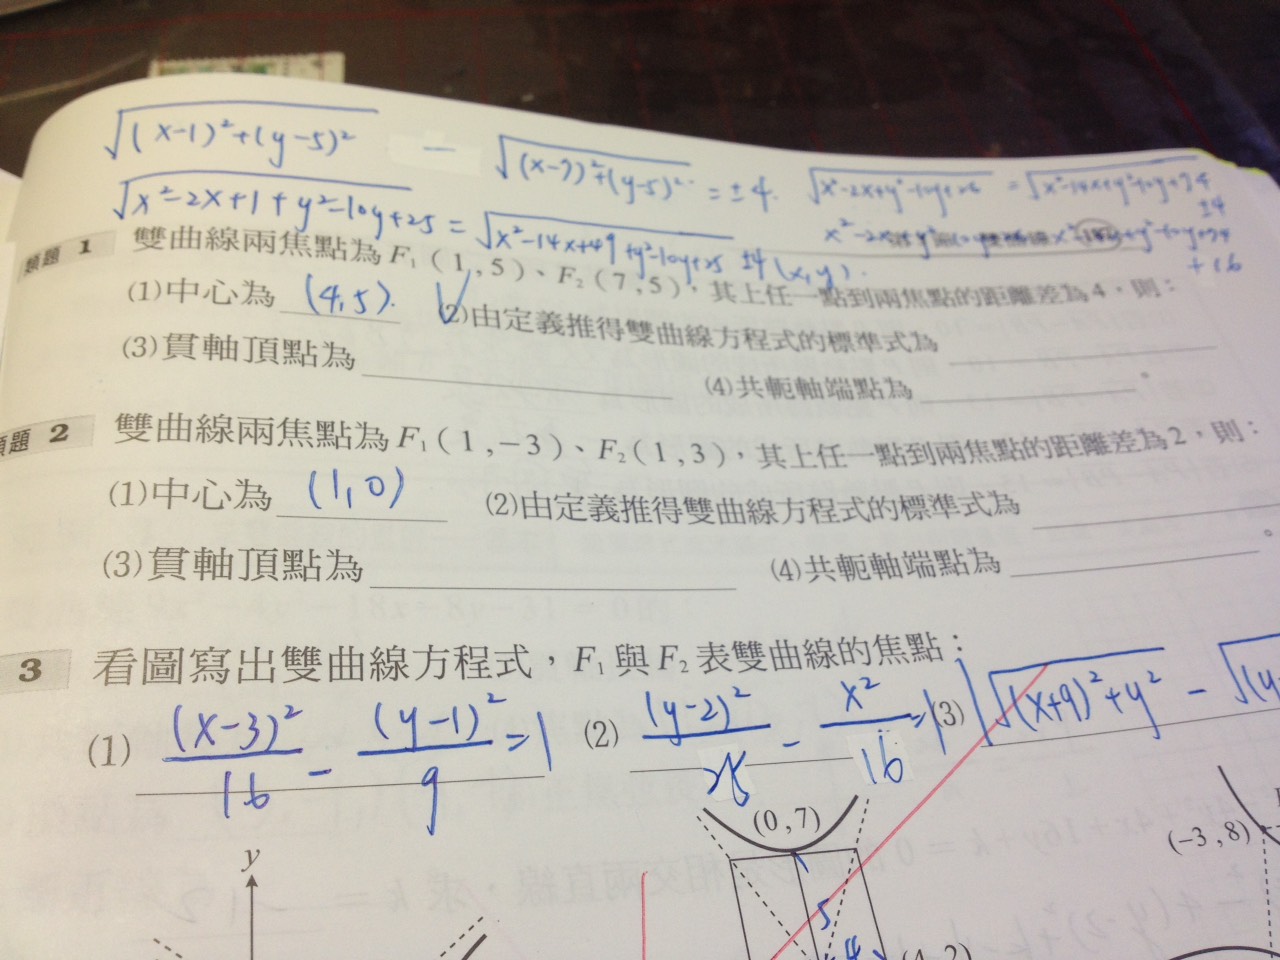 √(x-1)²+(y-5)² − √(x-7)²+(y-5)² = ±4.
√x²-2x+1+y²-10y+25 = √x²-14x+49+y²-10y+25 ±4 (x,y).
√x²-2x+y²-10y+26 = √x²-14x+y²-10y+74
±4
+16
類題 1 雙曲線兩焦點為 F₁(1,5)、F₂(7,5),其上任一點到兩焦點的距離差為4,則:
(1)中心為 (4,5). (2)由定義推得雙曲線方程式的標準式為
(3)貫軸頂點為 (4)共軛軸端點為 。
類題 2 雙曲線兩焦點為F₁(1,-3)、F₂(1,3),其上任一點到兩焦點的距離差為2,則:
(1)中心為 (1,0) (2)由定義推得雙曲線方程式的標準式為
(3)貫軸頂點為 (4)共軛軸端點為 。
3 看圖寫出雙曲線方程式,F₁與F₂表雙曲線的焦點:
(1) (x-3)²/16 − (y-1)²/9 = 1 (2) (y-2)²/25 − x²/16 = 1 (3) |√(x+9)²+y² − √(y
(0,7)
(-3,8)
y
5
4